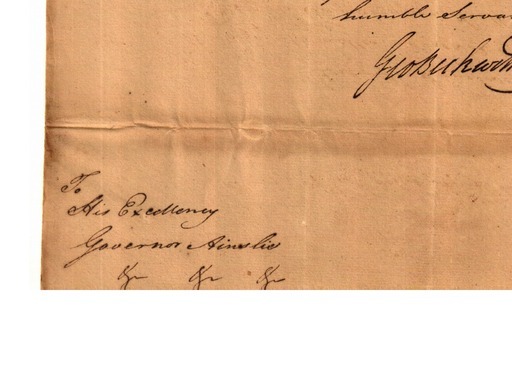 humble Serva
Geo Beckwith
To
His Excellency
Governor Ainslie
&c &c &c